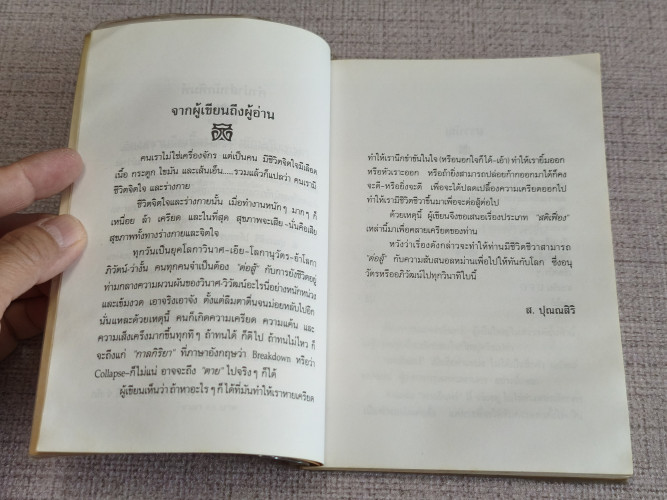 จากผู้เขียนถึงผู้อ่าน
คนเราไม่ใช่เครื่องจักร แต่เป็นคน มีชีวิตจิตใจมีเลือด
เนื้อ กระดูก ไขมัน และเส้นเอ็น.....รวมแล้วก็แปลว่า คนเรามี
ชีวิตจิตใจ และร่างกาย
ชีวิตจิตใจและร่างกายนั้น เมื่อทำงานหนักๆ มากๆ ก็
เหนื่อย ล้า เครียด และในที่สุด สุขภาพจะเสีย-นั่นคือเสีย
สุขภาพทั้งทางร่างกายและจิตใจ
ทุกวันเป็นยุคโลกาวินาศ-เอ๊ย-โลกานุวัตร-อ้าวโลกา
ภิวัตน์-ว่างั้น คนทุกคนจำเป็นต้อง "ต่อสู้" กับการยังชีวิตอยู่
ท่ามกลางความผวนผันของวินาศ-วิวัฒน์อะไรนี่อย่างหนักหน่วง
และเข้มงวด เอาจริงเอาจัง ตั้งแต่ลืมตาตื่นจนม่อยหลับไปอีก
นั่นแหละด้วยเหตุนี้ คนก็เกิดความเครียด ความแค้น และ
ความเส็งเคร็งมากขึ้นทุกทีๆ ถ้าทนได้ ก็ดีไป ถ้าทนไม่ไหว ก็
จะถึงแก่ "กาลกิริยา" ที่ภาษาอังกฤษว่า Breakdown หรือว่า
Collapse-ก็ไม่แน่ อาจจะถึง "ตาย" ไปจริงๆ ก็ได้
ผู้เขียนเห็นว่า ถ้าหาอะไรๆ ก็ได้ที่มันทำให้เราหายเครียด
ทำให้เรานึกขำขันในใจ (หรือนอกใจก็ได้-เอ้า) ทำให้เรายิ้มออก
หรือหัวเราะออก หรือถ้ายังสามารถปล่อยก๊ากออกมาได้ก็คง
จะดี-หรือยิ่งจะดี เพื่อจะได้ปลดเปลื้องความเครียดออกไป
ทำให้เรามีชีวิตชีวาขึ้นมาเพื่อจะต่อสู้ต่อไป
ด้วยเหตุนี้ ผู้เขียนจึงขอเสนอเรื่องประเภท "สติเฟื่อง"
เหล่านี้มาเพื่อคลายเครียดของท่าน
หวังว่าเรื่องดังกล่าวจะทำให้ท่านมีชีวิตชีวาสามารถ
"ต่อสู้" กับความสับสนอลหม่านเพื่อไปให้ทันกับโลก ซึ่งอนุ
วัตรหรืออภิวัฒน์ไปทุกวินาทีใบนี้
ส. ปุณณสิริ